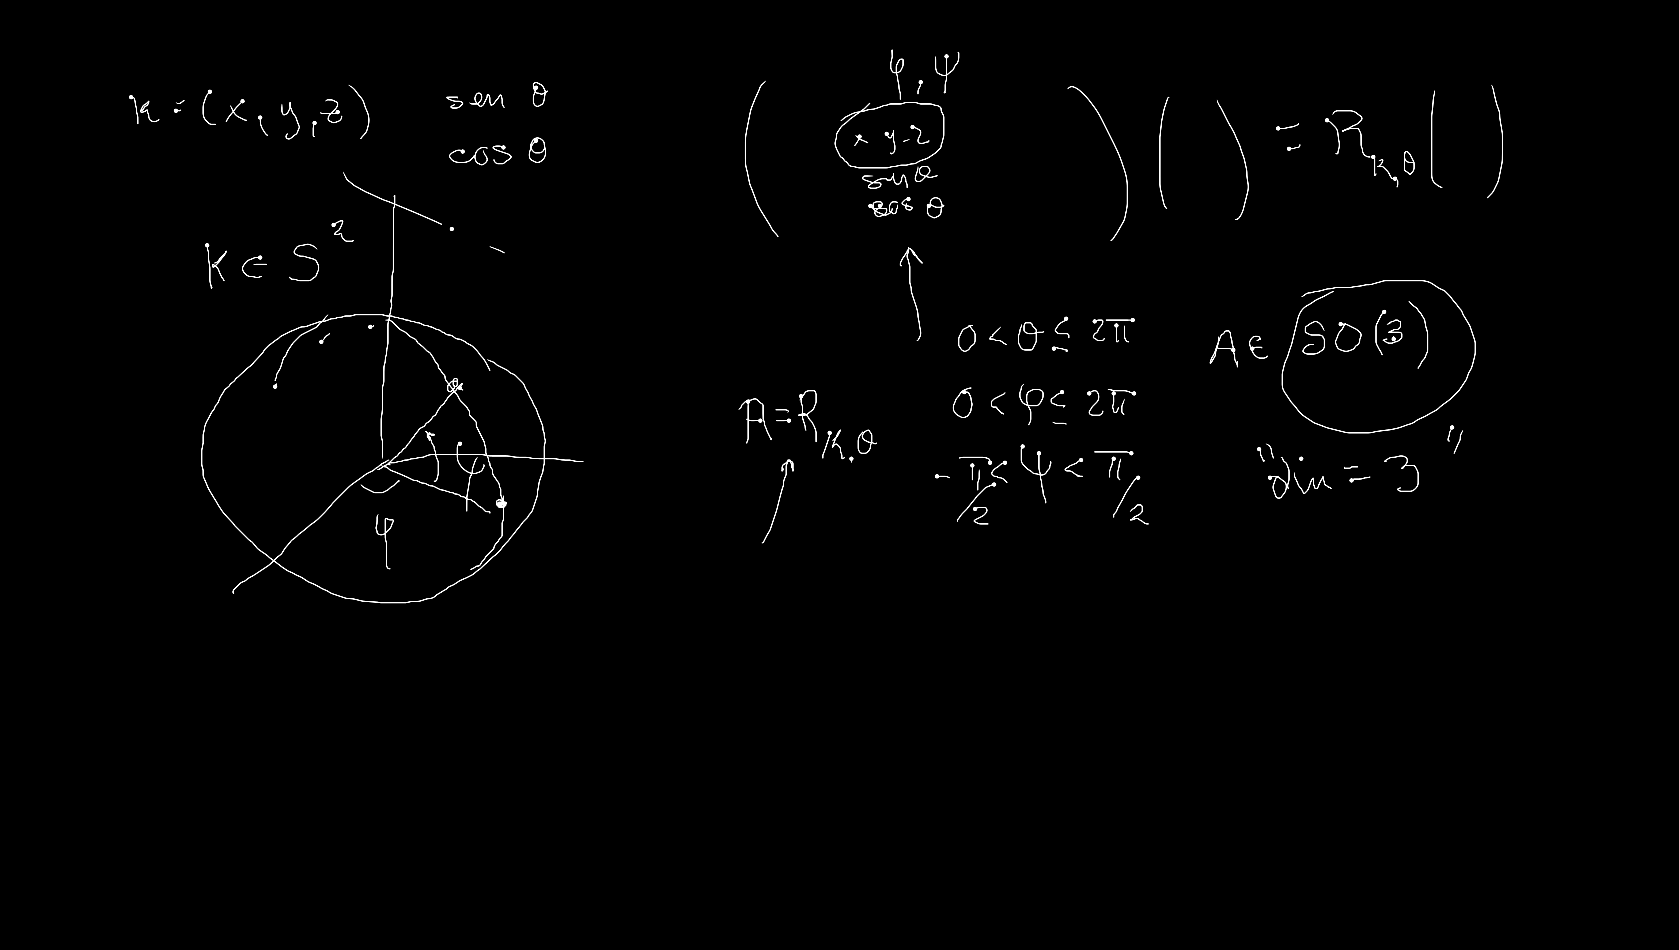 k = (x, y, z)
sen θ
cos θ
k ∈ S²
φ
ψ
φ, ψ
( x y z ) ( ) = R_{k,θ} ( )
sen θ
cos θ
0 < θ ≤ 2π
0 < φ ≤ 2π
-π/2 < ψ < π/2
A = R_{k,θ}
A ∈ SO(3)
"dim = 3"